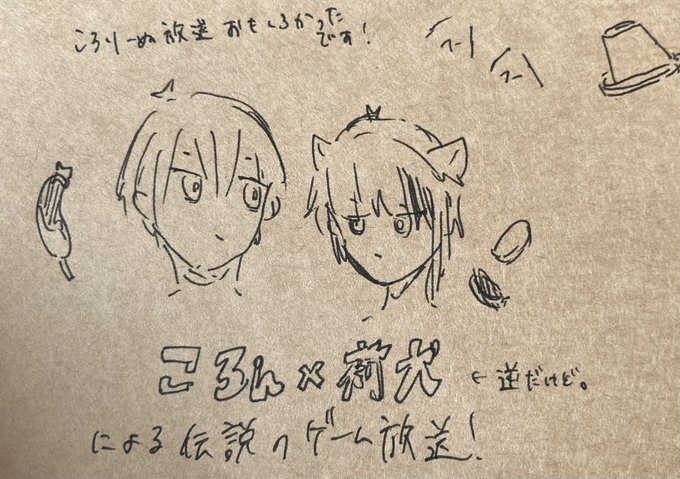 ころりーぬ放送 おもしろかった
です!
ころん×莉犬 ← 逆だけど。
による伝説のゲーム放送!